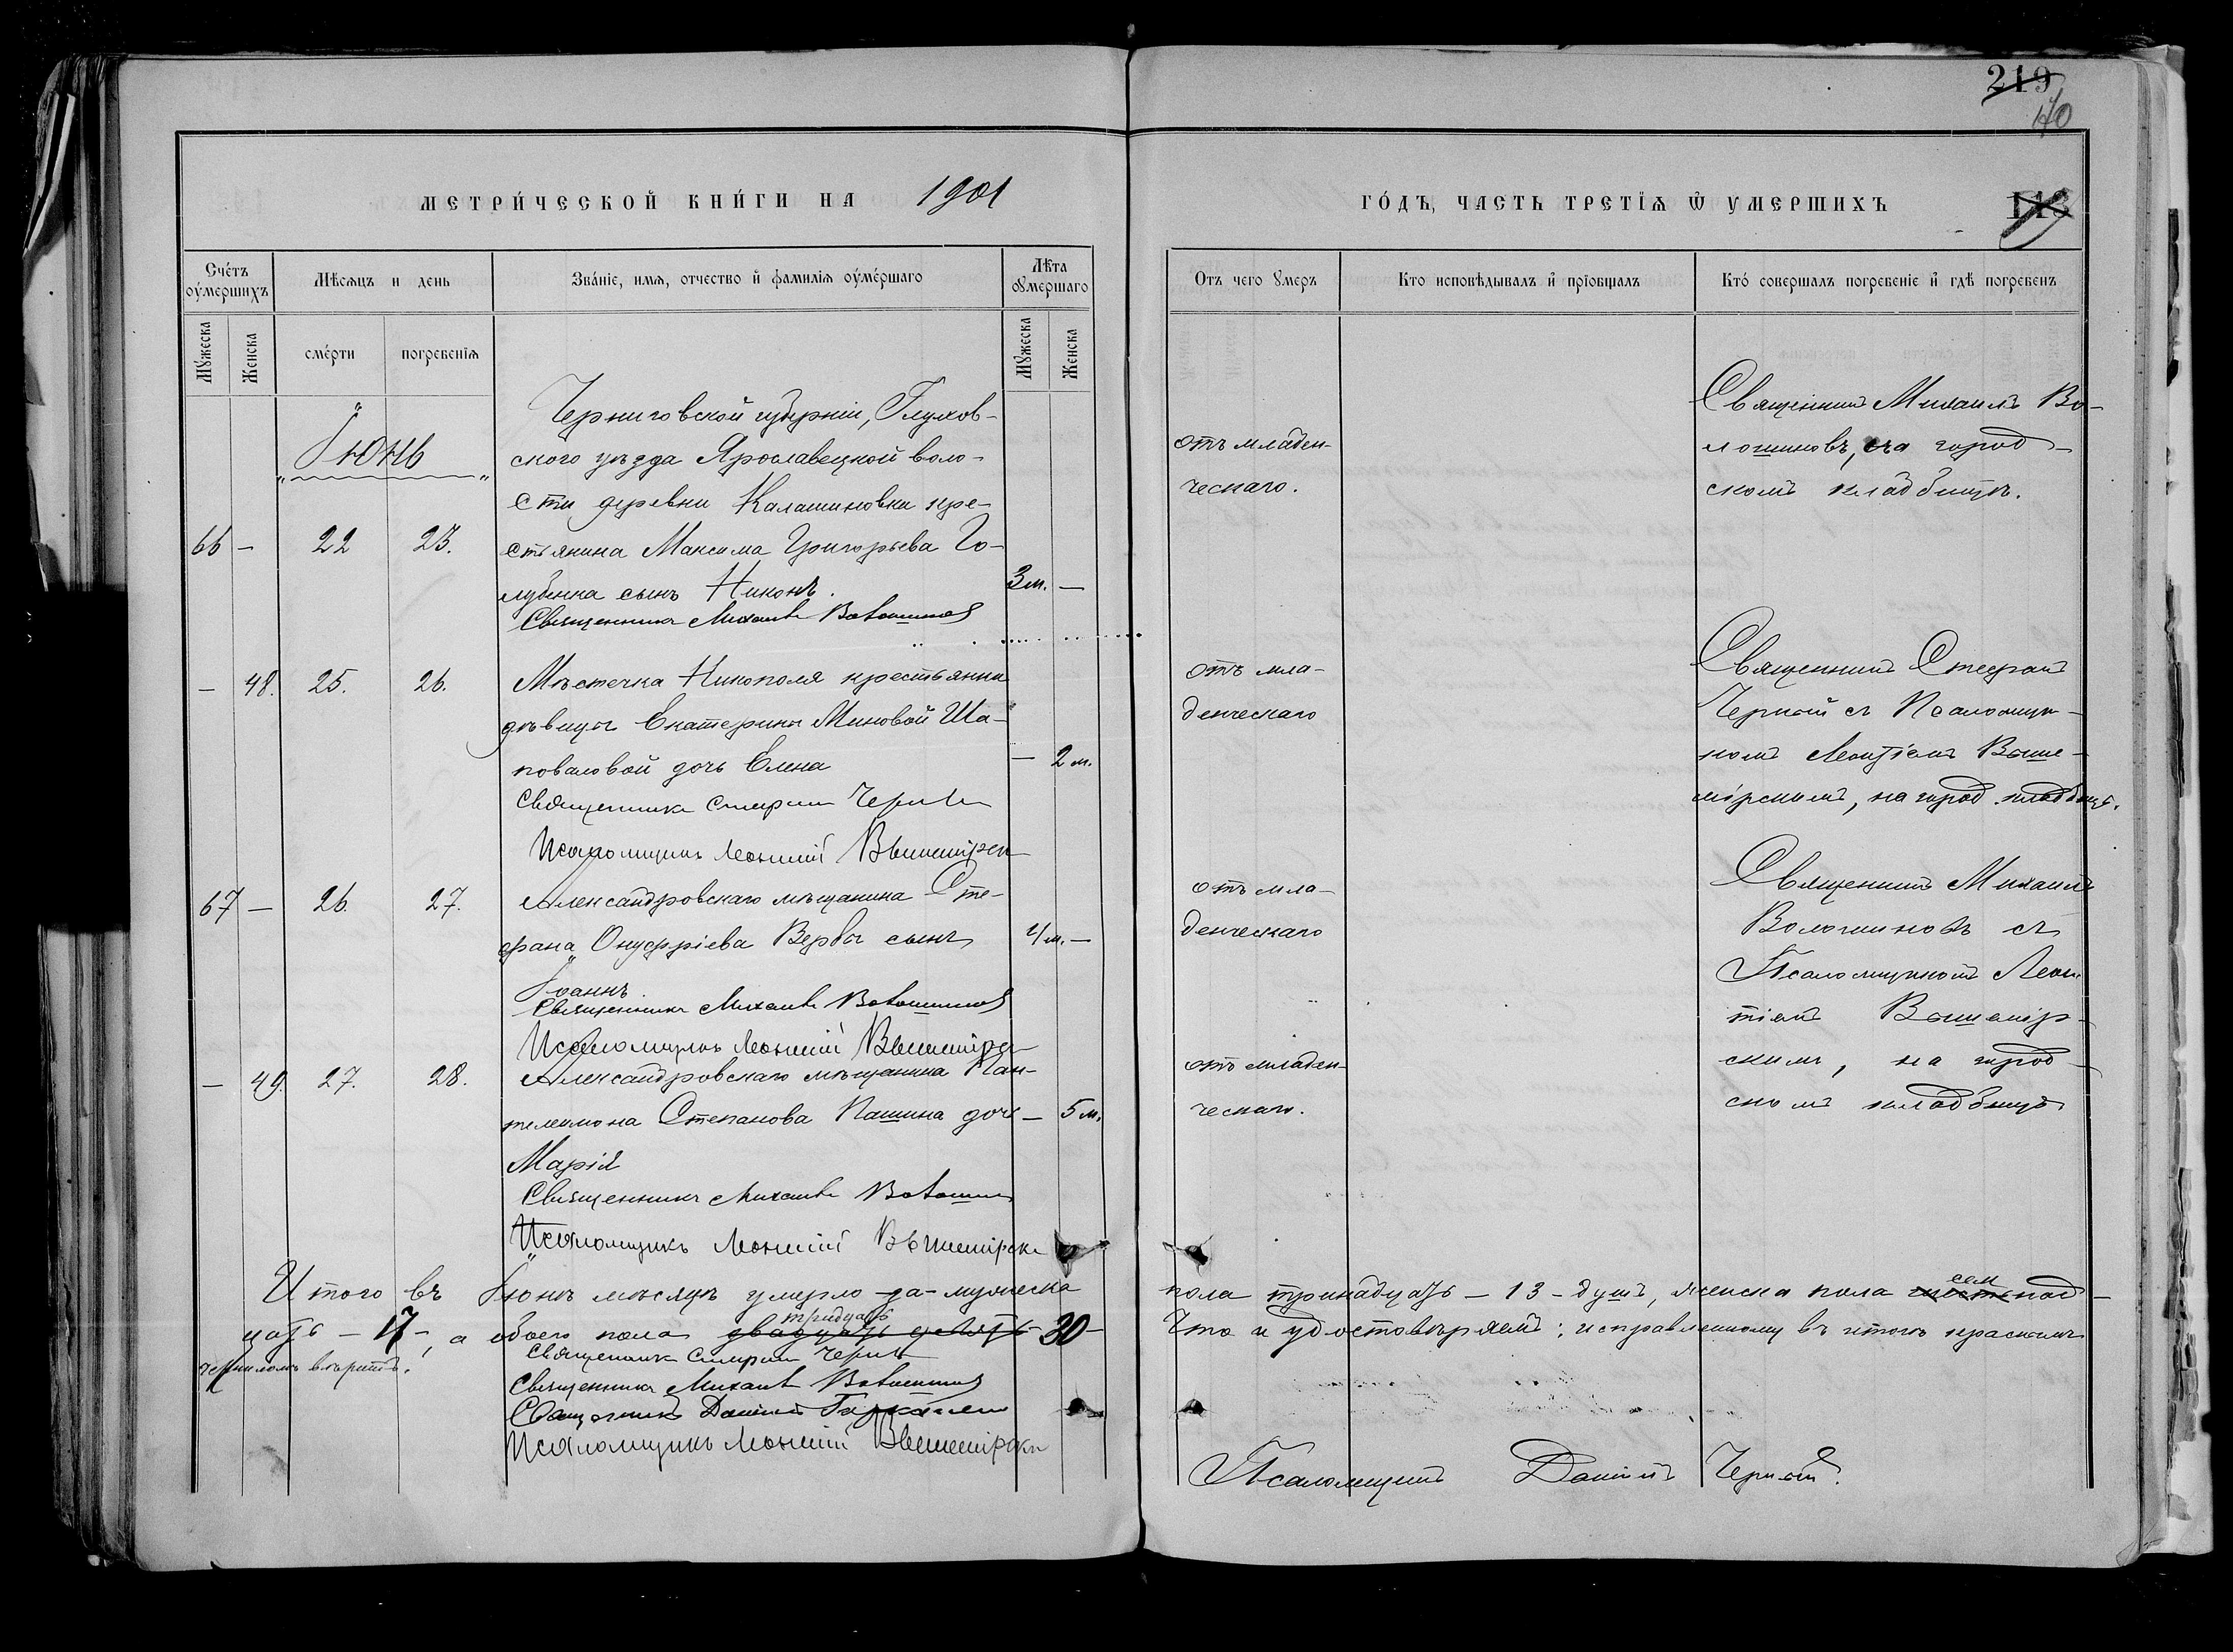 219
170
МЕТРИ́ЧЕСКОЙ КНИ́ГИ НА 1901
ГО́ДЪ, ЧАСТЬ ТРЕТЇѦ Ѿ УМЕРШИХЪ
Сче́тъ оу҆ме́ршихъ
Мѣсѧцъ и день
Зва́нїе, имѧ, отчество и҆ фамилїѧ оу҆ме́ршаго
Лѣта оу҆ме́ршаго
Мꙋ́жеска
Женска
сме́рти
погребенїѧ
Мꙋ́жеска
Женска
Отъ чего ᲂумеръ
Кто исповѣдывалъ и҆ прїобщалъ
Кто́ совершалъ погребенїе и҆ гдѣ погребенъ
Іюнь
Черниговской губерніи, Глухов-
ского уѣзда Ярославецкой воло-
сти деревни Калашиновки кре-
66 — 22 23. стьянина Максима Григорьева Го-
лубенка сынъ Никонъ. 3 м. —
Священникъ Михаилъ Волошиновъ
отъ младен-
ческаго.
Священникъ Михаилъ Во-
лошиновъ, на город-
скомъ кладбищѣ.
— 48. 25. 26. Мѣстечка Никополя крестьянки
дѣвицы Екатерины Миновой Ша-
поваловой дочь Елена — 2 м.
Священникъ Стефанъ Черный
Псаломщикъ Леонтій Вышемірскій
отъ мла-
денческаго
Священникъ Стефанъ
Черный съ Псаломщи-
комъ Леонтіемъ Выше-
мірскимъ, на город. кладбищѣ.
67 — 26. 27. Александровскаго мѣщанина Сте-
фана Онуфріева Вербы сынъ 4 м. —
Іоаннъ
Священникъ Михаилъ Волошиновъ
Псаломщикъ Леонтій Вышемірскій
отъ мла-
денческаго
Священникъ Михаилъ
Волошиновъ съ
Псаломщикомъ Леон-
тіемъ Вышемір-
скимъ, на город-
скомъ кладбищѣ
— 49. 27. 28. Александровскаго мѣщанина Пан-
телеимона Степанова Пашина дочь — 5 м.
Марія
Священникъ Михаилъ Волошиновъ
Псаломщикъ Леонтій Вышемірскій
отъ младен-
ческаго.
Итого въ Іюнѣ мѣсяцѣ умерло — мужеска
пола тринадцать — 13 — душъ, женска пола сем шестьнад-
цать — 17 —, а обоего пола тридцать двадцать девять 30 —
Что и удостовѣряемъ: исправленному въ итогѣ красными
чернилами вѣрить.
Священникъ Стефанъ Черный
Священникъ Михаилъ Волошиновъ
Священникъ Даніилъ
Псаломщикъ Леонтій Вышемірскій
Псаломщикъ Даніилъ Черный.